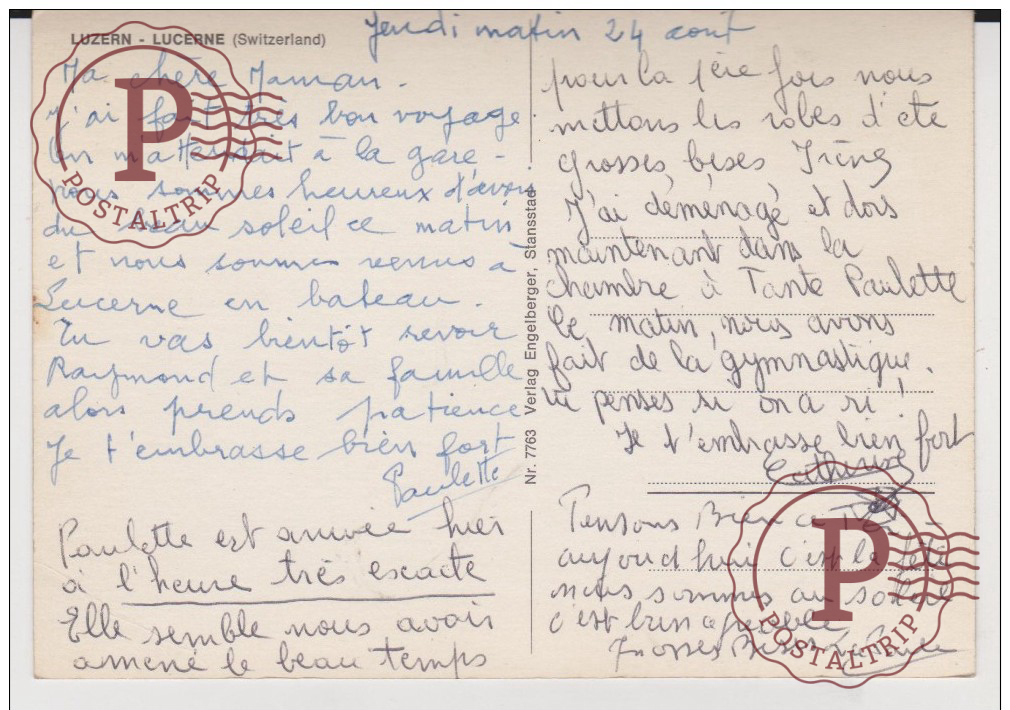 LUZERN - LUCERNE (Switzerland)
Jeudi matin 24 août
Ma chère Maman.
J'ai fait très bon voyage.
On m'attendait à la gare -
nous sommes heureux d'avoir
du beau soleil ce matin
et nous sommes venus à
Lucerne en bateau.
Tu vas bientôt revoir
Raymond et sa famille
alors prends patience
Je t'embrasse bien fort
Paulette
Paulette est arrivée hier
à l'heure très exacte
Elle semble nous avoir
amené le beau temps
pour la 1ère fois nous
mettons les robes d'été
grosses bises Irène
J'ai déménagé et dors
maintenant dans la
chambre à Tante Paulette
le matin, nous avons
fait de la gymnastique.
tu penses si on a ri !
Je t'embrasse bien fort
Catherine
Pensons Bien a
aujourd hui c'est la fête
nous sommes au soleil
c'est bien agréable
Grosses Bises
Nr. 7763 Verlag Engelberger, Stansstad
P
POSTALTRIP
P
POSTALTRIP